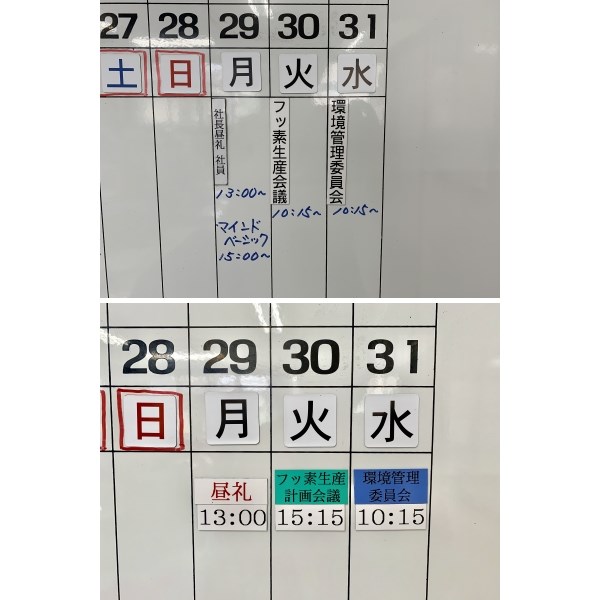 27 28 29 30 31
土 日 月 火 水
社長昼礼 社員
13:00~
マインド
ベーシック
15:00~
フッ素生産会議
10:15~
環境管理委員会
10:15~
28 29 30 31
日 月 火 水
昼礼
13:00
フッ素生産
計画会議
15:15
環境管理
委員会
10:15